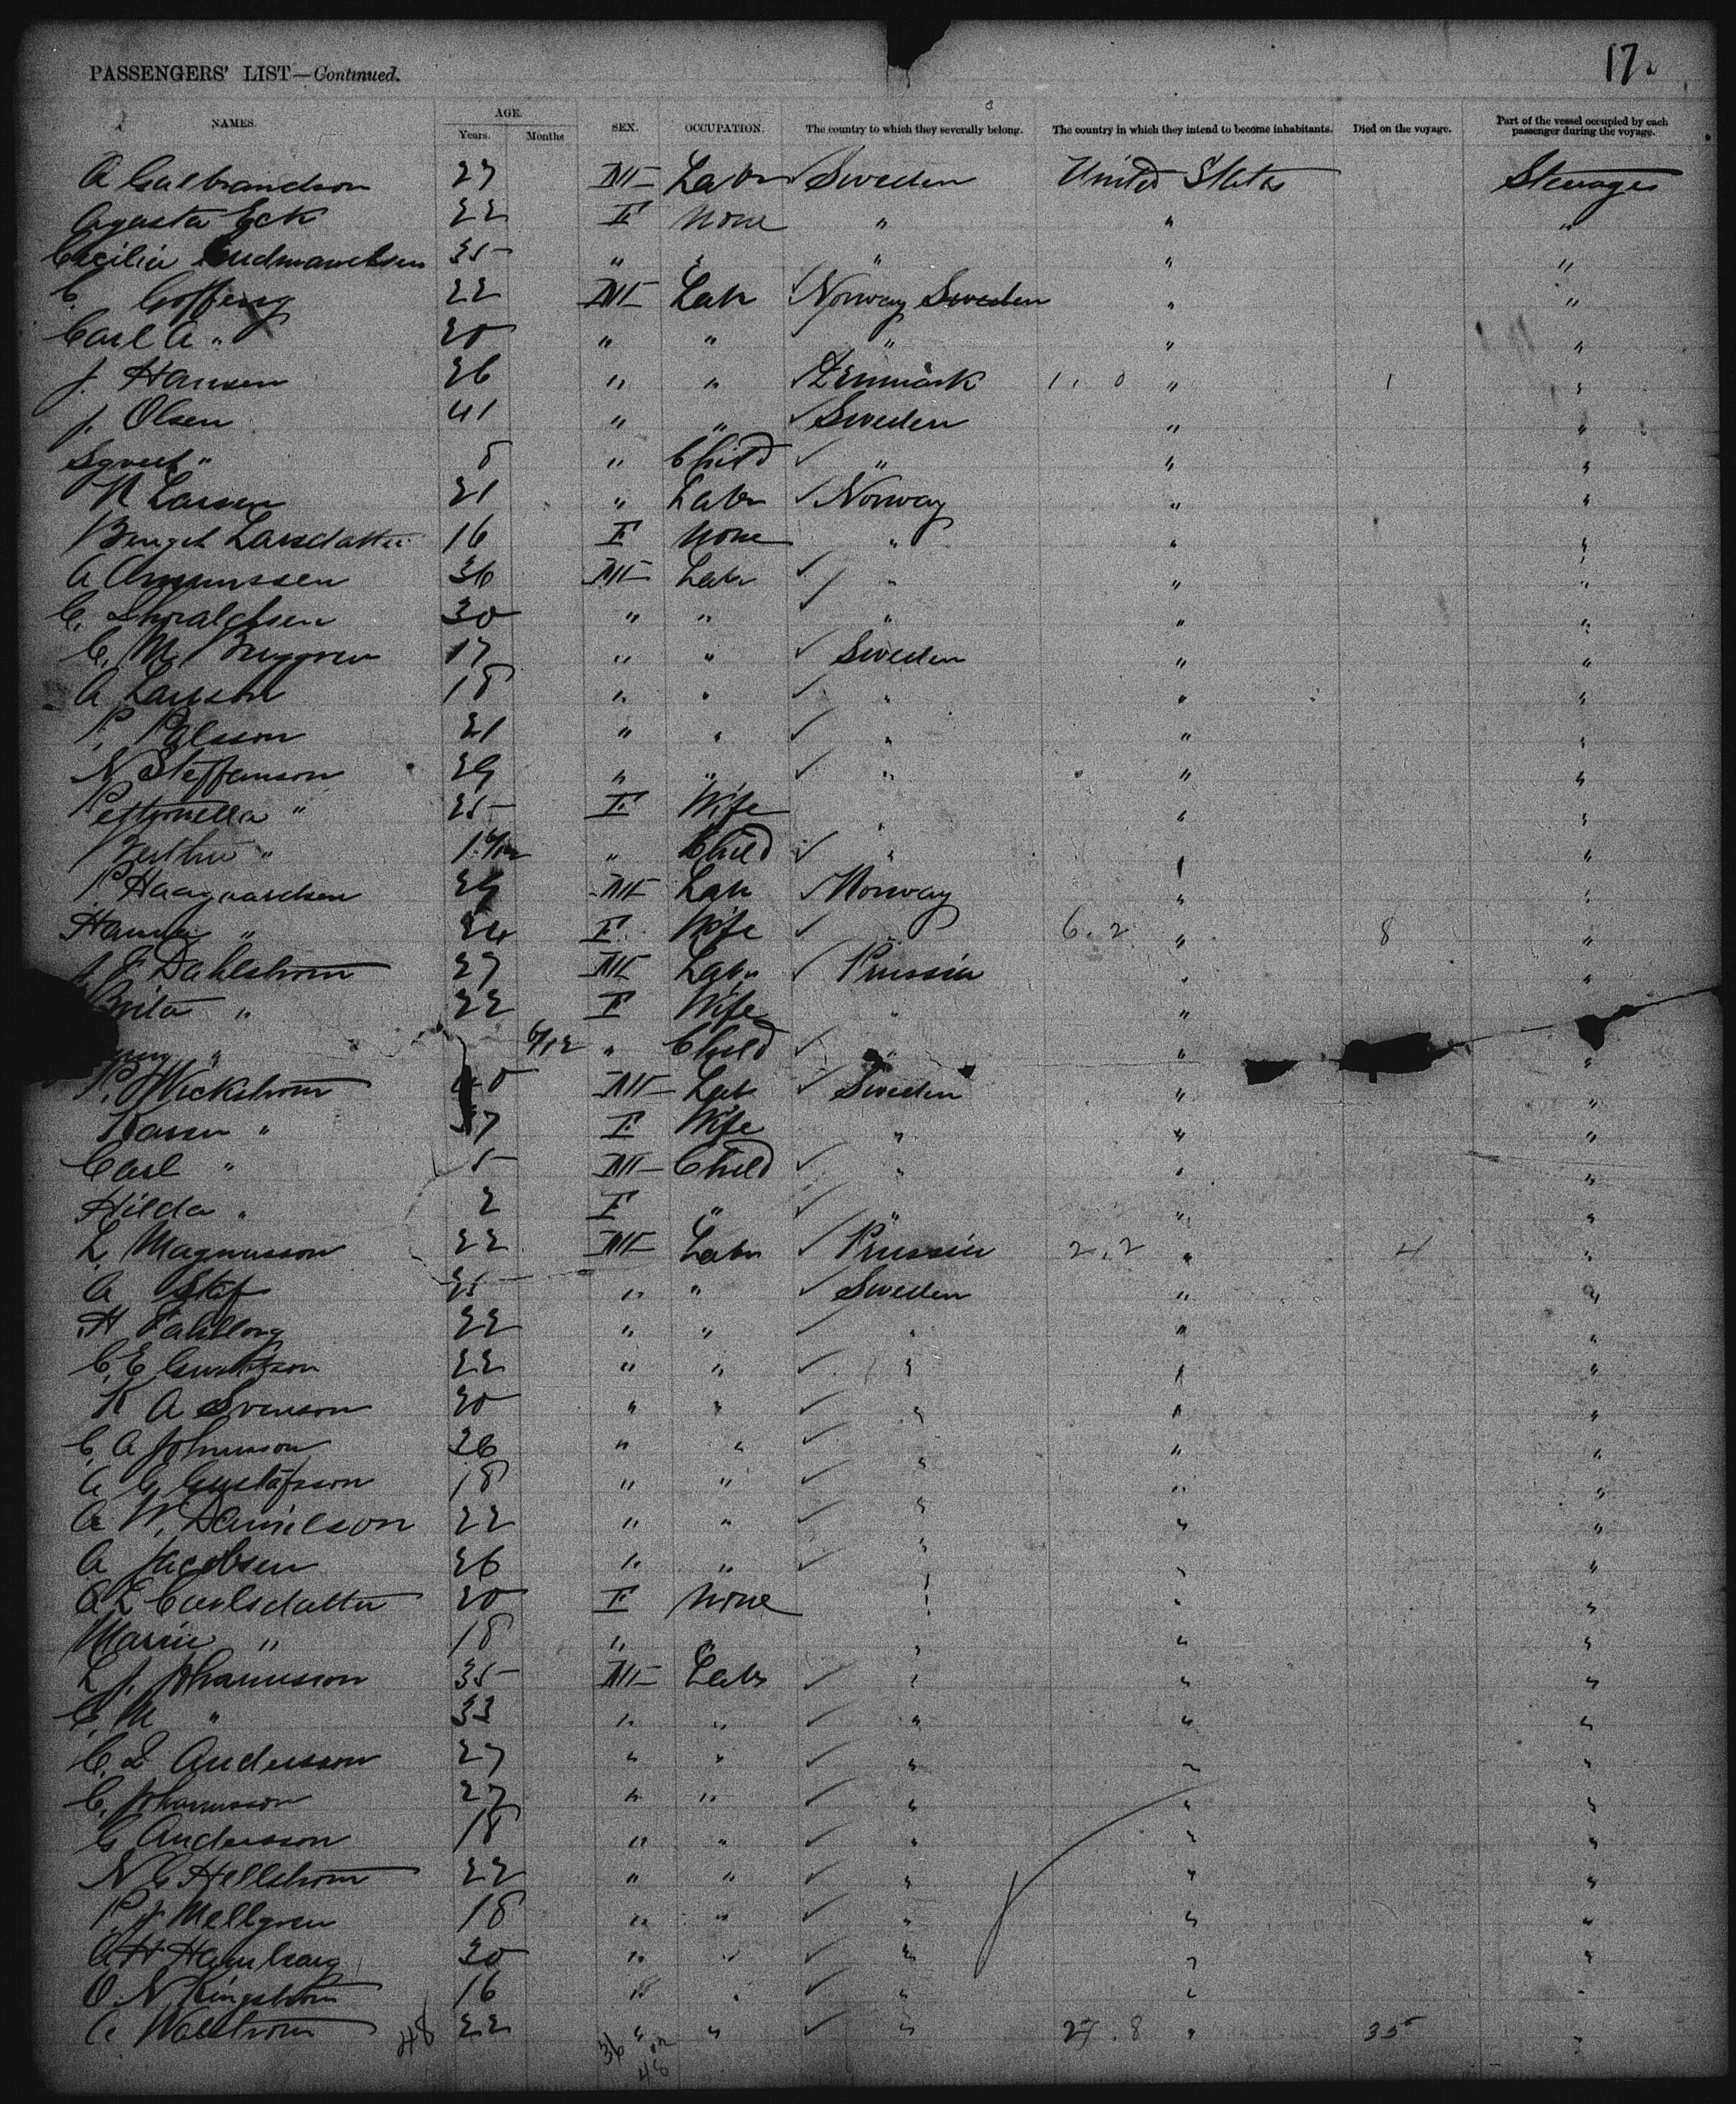 PASSENGERS' LIST—Continued. 17
NAMES. AGE. Years. Months SEX. OCCUPATION. The country to which they severally belong. The country in which they intend to become inhabitants. Died on the voyage. Part of the vessel occupied by each passenger during the voyage.
A 27 M Labr ✓ Sweden United States Steerage
Agusta Eck 22 F None " " "
Cecilia 35 " " " " "
C. 22 M Labr ✓ Norway Sweden " "
Carl A " 20 " " ✓ " " "
J. Hansen 26 " " ✓ Denmark 1. 0 " 1 "
J. Olsen 41 " " ✓ Sweden " "
" 8 " Child ✓ " " "
N Larsen 21 " Labr ✓ Norway " "
Larsdatter 16 F None " " "
A Amunssen 36 M Labr ✓ " " "
C. 30 " " ✓ " " "
C. M. 17 " " ✓ Sweden " "
A Larsson 18 " " ✓ " " "
P. Palsson 21 " " ✓ " " "
N Steffanson 29 " " ✓ " " "
" 25 F Wife " " "
" 1 6/12 " Child ✓ " " "
P Haagvardsen 29 M Labr ✓ Norway " "
Hanna " 24 F Wife ✓ " 6. 2 " 8 "
J Dahlstrom 27 M Labr ✓ Prussia " "
Brita " 22 F Wife " " "
" 6/12 " Child ✓ " " "
P. Wickstrom 40 M Labr ✓ Sweden " "
Karen " 37 F Wife " " "
Carl " 5 M Child ✓ " " "
Hilda " 2 F " ✓ " " "
L. Magnusson 22 M Labr ✓ Prussia 2. 2 " 4 "
A 25 " " ✓ Sweden " "
H 22 " " ✓ " " "
C. E Gustafson 22 " " ✓ " " "
K A Svenson 20 " " ✓ " " "
C. A Johnson 26 " " ✓ " " "
A G Gustafsson 18 " " ✓ " " "
A W. Danielson 22 " " ✓ " " "
A Jacobsen 26 " " ✓ " " "
A L Carlsdatter 20 F None " " "
Maria " 18 " " " " "
L J. Johannsson 35 M Labr ✓ " " "
C. M " 33 " " ✓ " " "
C. L Andersson 27 " " ✓ " " "
C. Johannsson 27 " " ✓ " " "
G Andersson 18 " " ✓ " " "
N G Hellstrom 22 " " ✓ " " "
P. J Mellgren 18 " " ✓ " " "
A H 20 " " ✓ " " "
O. N Kingstrom 16 " " ✓ " " "
C Wallstrom 22 " " ✓ " 27. 8 " 35 "
48 36 12 48